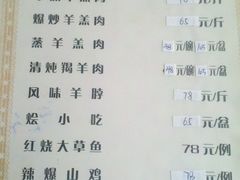 爆炒羊羔肉 65元/斤
蒸羊羔肉 元/盆
清炖羯羊肉 元/ 元/盆
风味羊脖 78元/斤
烩小吃 65元/盆
红烧大草鱼 78元/例
辣爆山鸡 78元/例